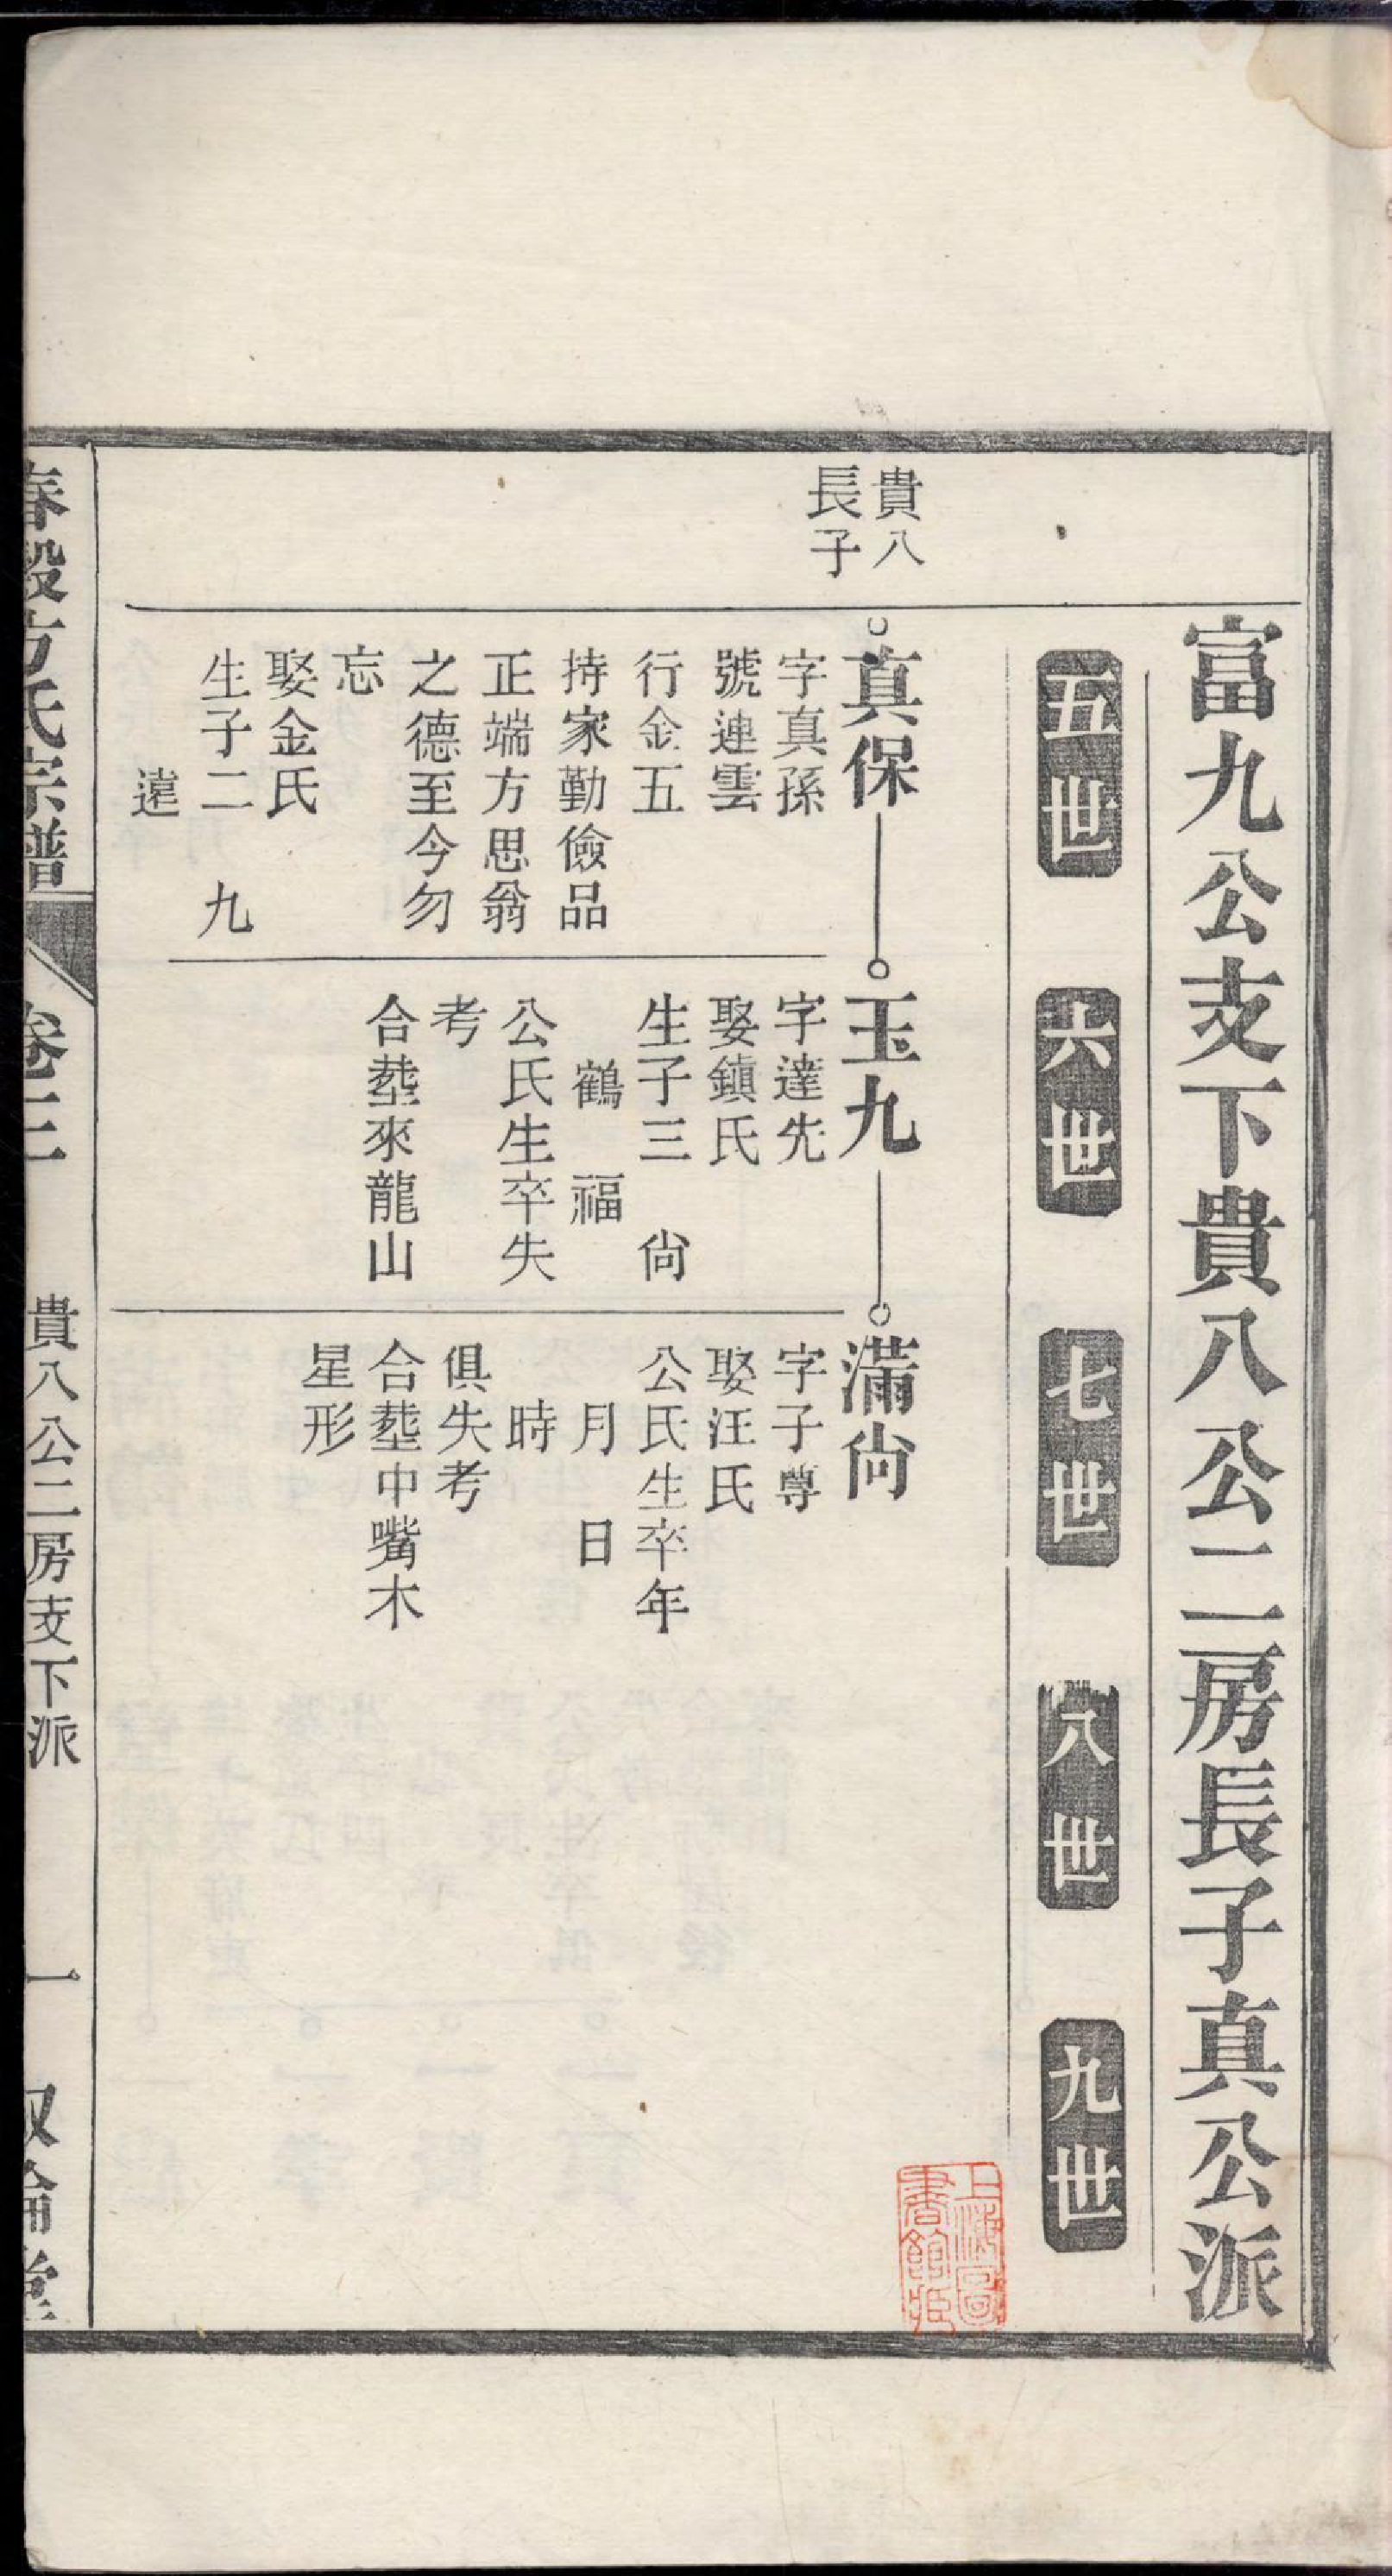 富九公支下貴八公二房長子真公派
五世
六世
七世
八世
九世
貴八
長子
真保
字真孫
號連雲
行金五
持家勤儉品
正端方思翁
之德至今勿
忘
娶金氏
生子二 九
遠
玉九
字達先
娶鎮氏
生子三 尙
鶴 福
公氏生卒失
考
合塟來龍山
滿尙
字子尊
娶汪氏
公氏生卒年
月 日
時
俱失考
合塟中嘴木
星形
春穀方氏宗譜
卷三
貴八公二房支下派
一
上海圖書館藏